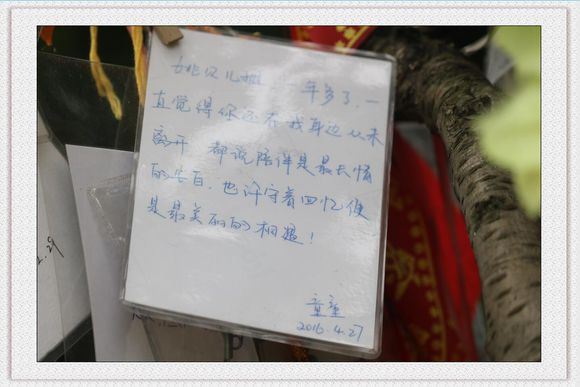 姚贝儿姐 一年多了,一
直觉得你还在我身边从未
离开 都说陪伴是最长情
的告白,也许守着回忆便
是最美丽的相遇!
童童
2016.4.27